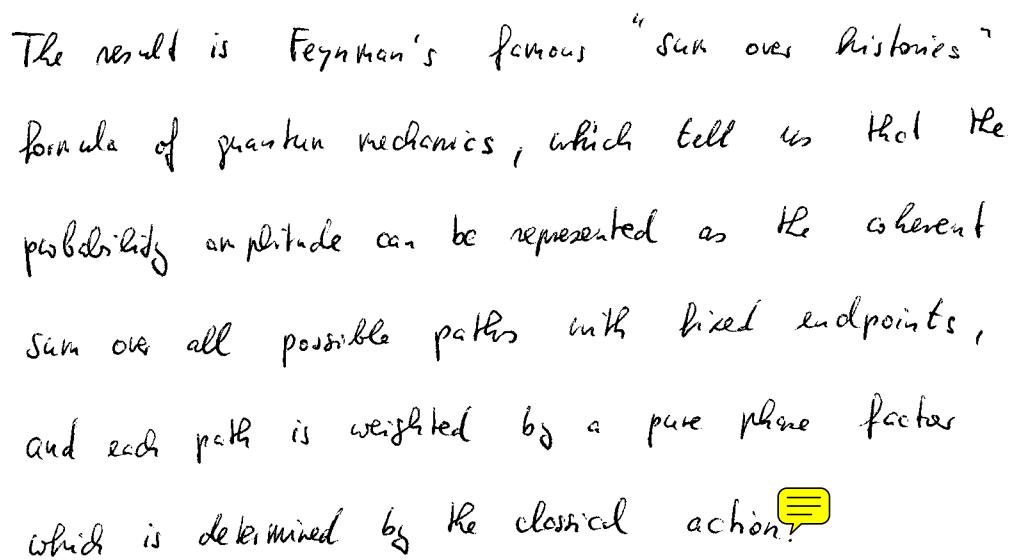 The result is Feynman's famous "sum over histories"
formula of quantum mechanics, which tell us that the
probability amplitude can be represented as the coherent
sum over all possible paths with fixed endpoints,
and each path is weighted by a pure phase factor
which is determined by the classical action!